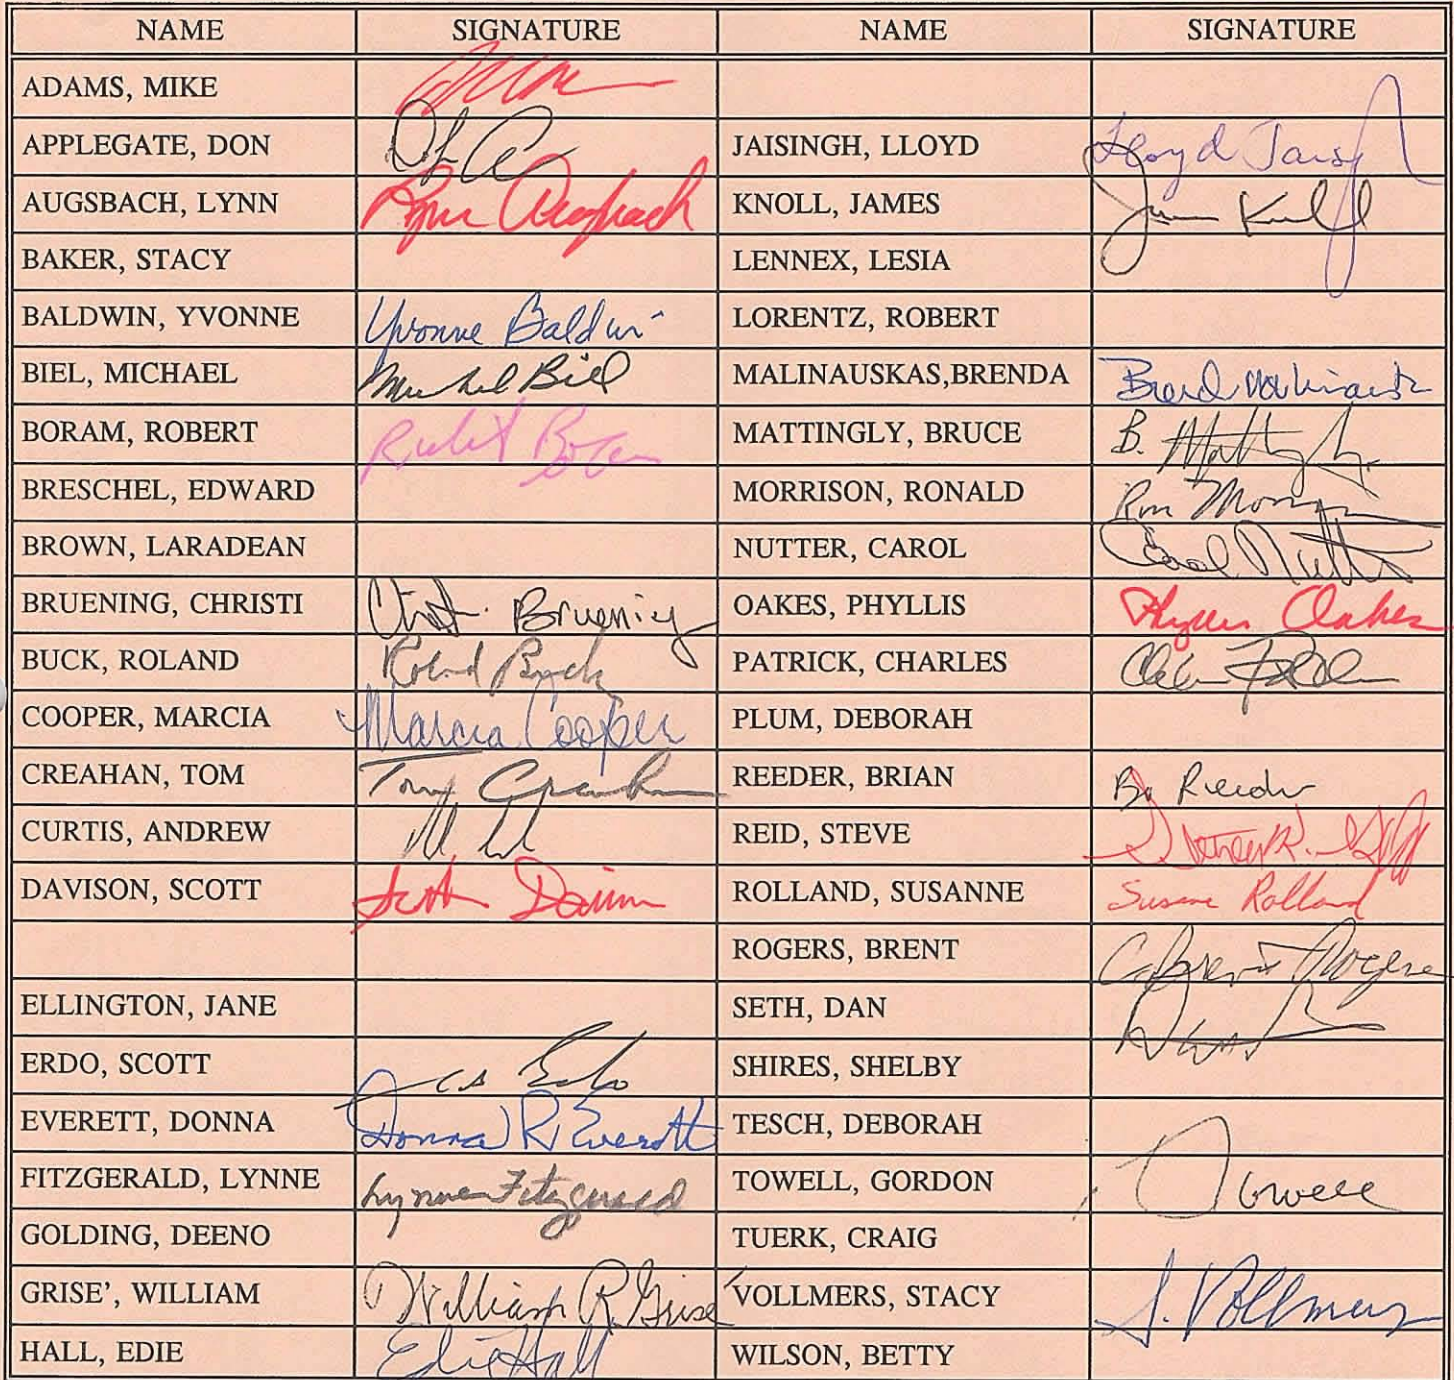 NAME SIGNATURE NAME SIGNATURE
ADAMS, MIKE
APPLEGATE, DON JAISINGH, LLOYD Lloyd Jaisi
AUGSBACH, LYNN Lynn Augsbach KNOLL, JAMES
BAKER, STACY LENNEX, LESIA
BALDWIN, YVONNE Yvonne Baldwin LORENTZ, ROBERT
BIEL, MICHAEL Michael Biel MALINAUSKAS,BRENDA
BORAM, ROBERT Robert Boram MATTINGLY, BRUCE B. Mattingly
BRESCHEL, EDWARD MORRISON, RONALD Ron
BROWN, LARADEAN NUTTER, CAROL Carol Nutter
BRUENING, CHRISTI Bruening OAKES, PHYLLIS Phyllis Oakes
BUCK, ROLAND Roland Buck PATRICK, CHARLES
COOPER, MARCIA Marcia Cooper PLUM, DEBORAH
CREAHAN, TOM Tom REEDER, BRIAN Reeder
CURTIS, ANDREW REID, STEVE
DAVISON, SCOTT Scott ROLLAND, SUSANNE Rolland
ROGERS, BRENT C. Brent Rogers
ELLINGTON, JANE SETH, DAN
ERDO, SCOTT SHIRES, SHELBY
EVERETT, DONNA Donna R. Everett TESCH, DEBORAH
FITZGERALD, LYNNE Lynne Fitzgerald TOWELL, GORDON Towell
GOLDING, DEENO TUERK, CRAIG
GRISE', WILLIAM William R. Grise VOLLMERS, STACY S. Vollmers
HALL, EDIE Edie Hall WILSON, BETTY